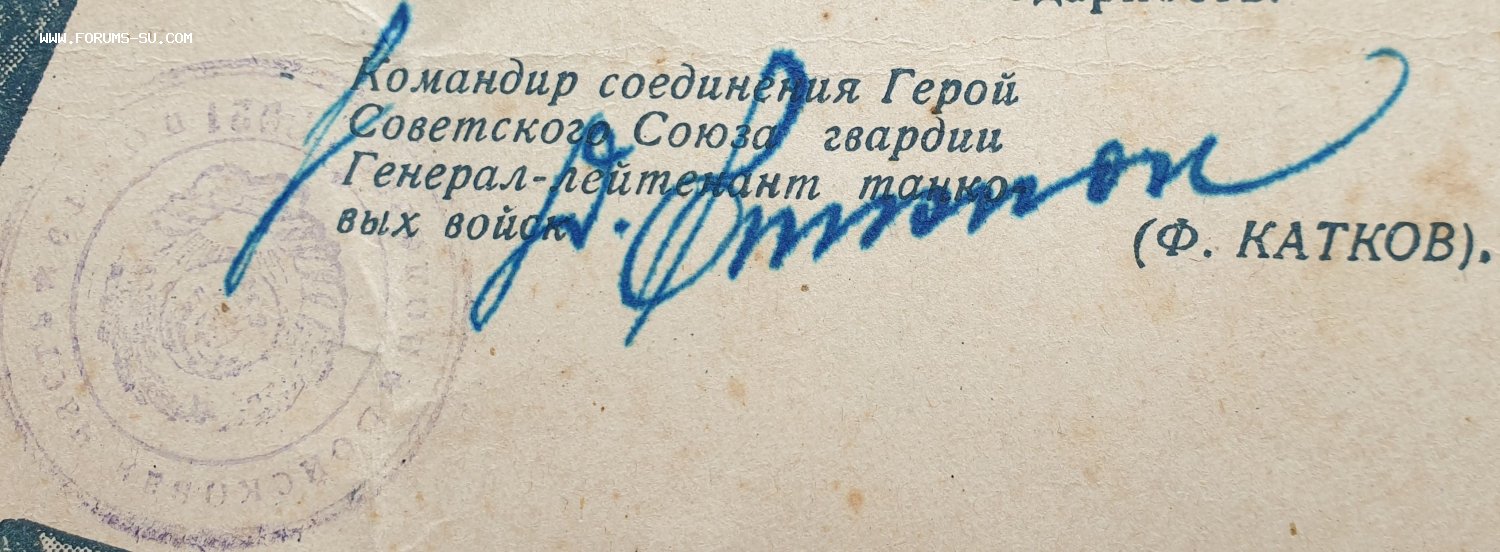 одарность.
WWW.FORUMS-SU.COM
Командир соединения Герой
Советского Союза гвардии
Генерал-лейтенант танко-
вых войск
(Ф. КАТКОВ).
ВОЙСКОВАЯ ЧАСТЬ